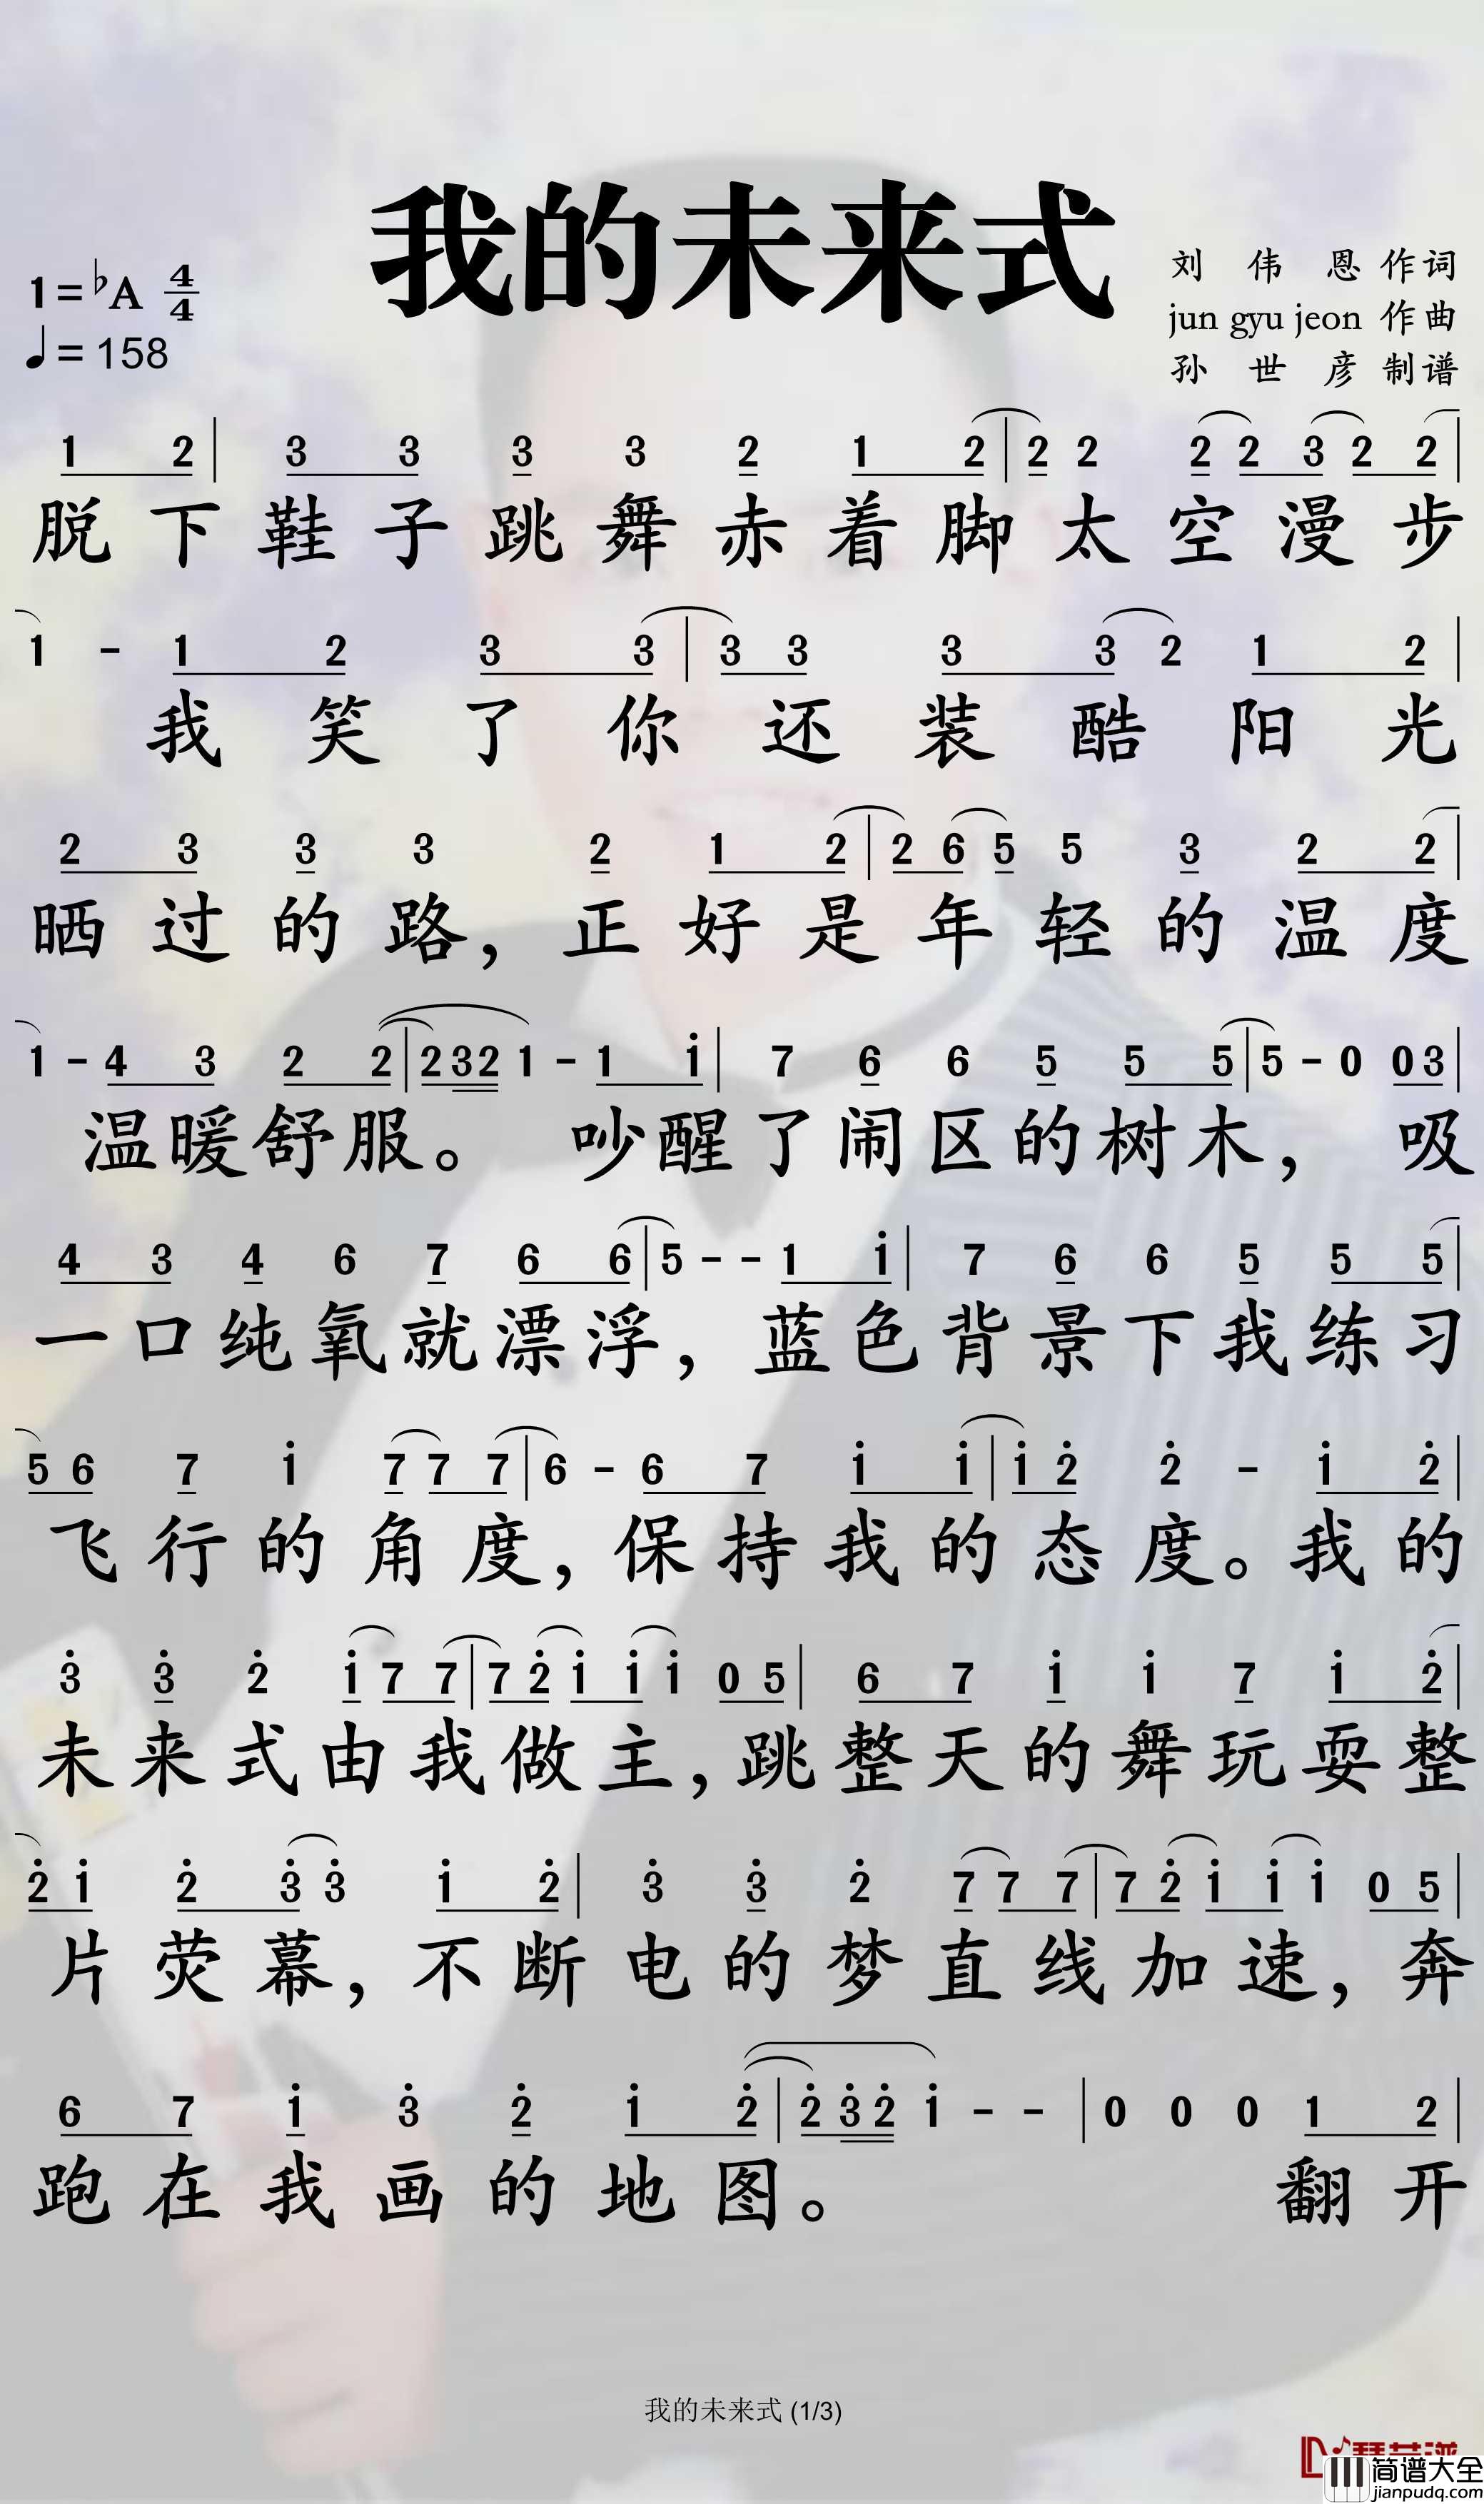 我的未来式
1=♭A 4/4
♩=158
刘伟恩 作词
jun gyu jeon 作曲
孙世彦 制谱
1 2 | 3 3 3 3 2 1 2 | 2 2 2 2 3 2 2 |
脱下鞋子跳舞赤着脚太空漫步
1 - 1 2 3 3 | 3 3 3 3 2 1 2 |
我笑了你还装酷阳光
2 3 3 3 2 1 2 | 2 6 5 5 3 2 2 |
晒过的路，正好是年轻的温度
1 - 4 3 2 2 | 2 3 2 1 - 1 i | 7 6 6 5 5 5 | 5 - 0 0 3 |
温暖舒服。吵醒了闹区的树木，吸
4 3 4 6 7 6 6 | 5 - - 1 i | 7 6 6 5 5 5 |
一口纯氧就漂浮，蓝色背景下我练习
5 6 7 i 7 7 7 | 6 - 6 7 i i | i 2̇ 2̇ - i 2̇ |
飞行的角度，保持我的态度。我的
3̇ 3̇ 2̇ i 7 7 | 7 2̇ i i i 0 5 | 6 7 i i 7 i 2̇ |
未来式由我做主，跳整天的舞玩耍整
2̇ i 2̇ 3̇ 3̇ i 2̇ | 3̇ 3̇ 2̇ 7 7 7 | 7 2̇ i i i 0 5 |
片荧幕，不断电的梦直线加速，奔
6 7 i 3̇ 2̇ i 2̇ | 2̇ 3̇ 2̇ i - - | 0 0 0 1 2 |
跑在我画的地图。翻开
我的未来式 (1/3)
简谱大全
jianpudq.com